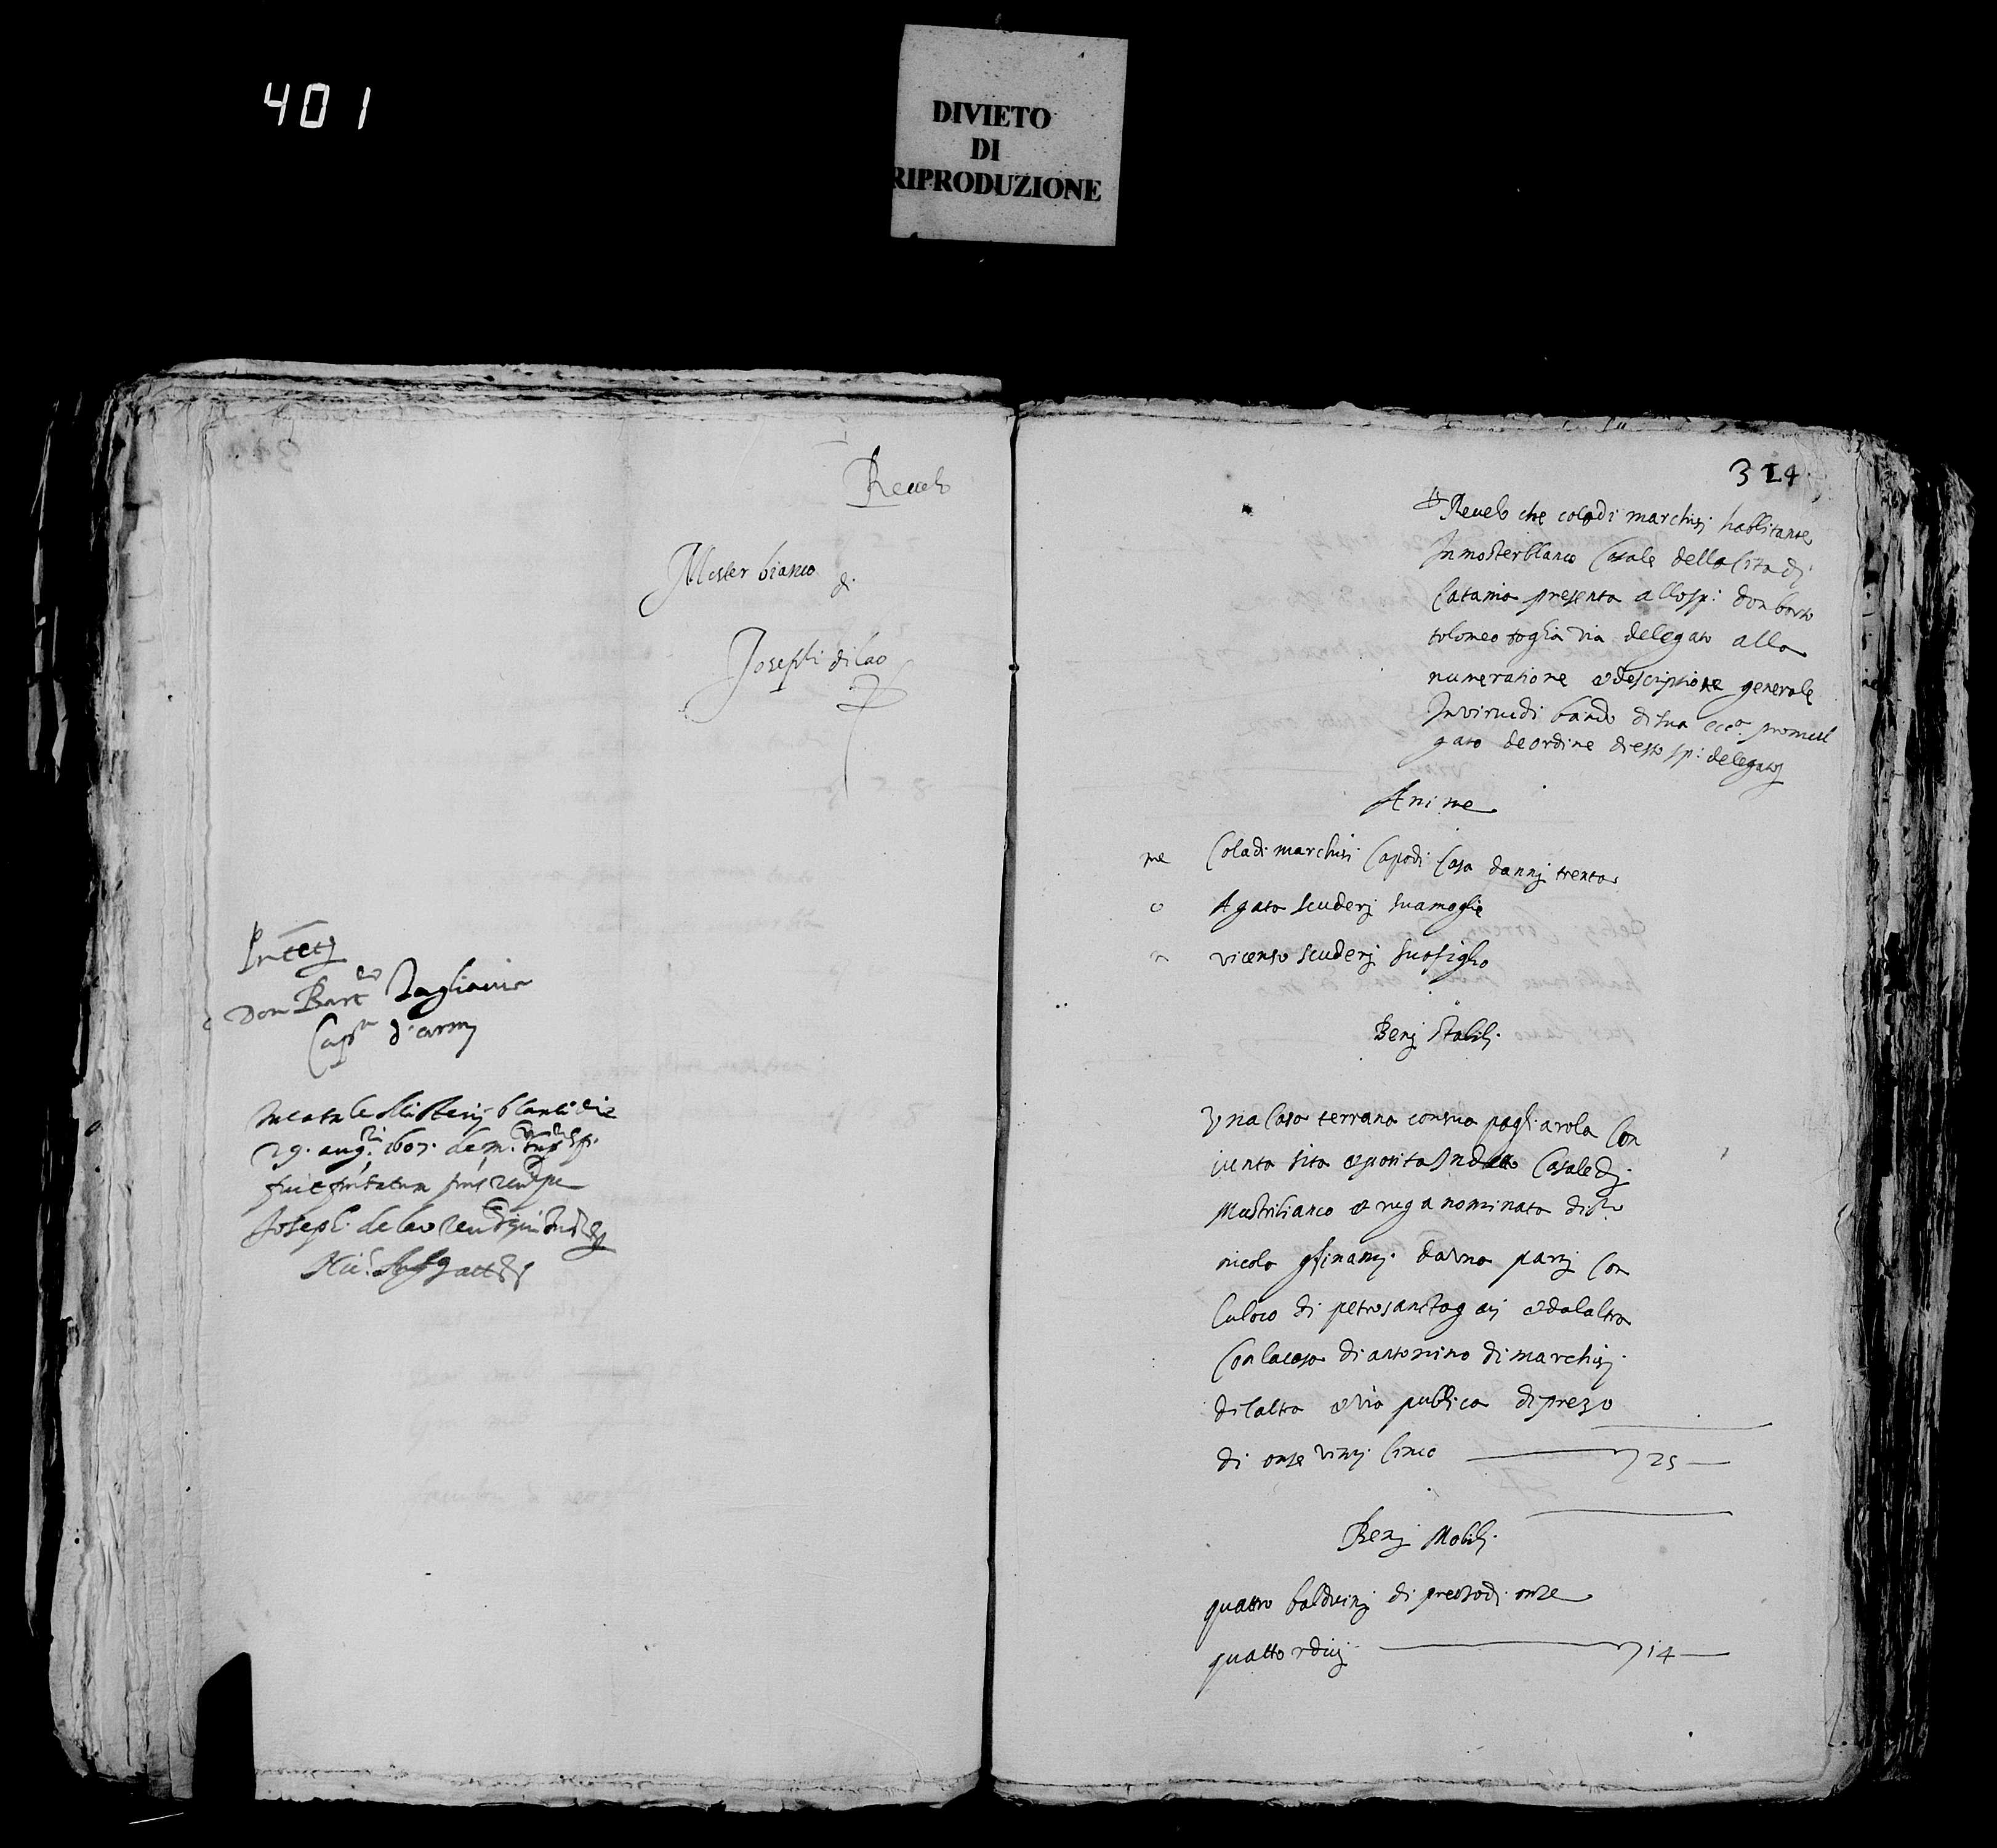 401
DIVIETO
DI
RIPRODUZIONE
Revelo
Mister bianco
di
Josephi di lao
Don Bart.eo Tagliavia
Cap.n d'armj
29. aug.ti 1607. de m.to
fuit
Joseph. de lao
324
Revelo che cola di marchisi habbitante
In mosterblanco Casale della Cita di
Catania presenta allo sp: don barto
tolomeo taglia via delegato alla
numeratione et descriptione generale
In virtu di bando di sua ecc.a promul
gato de ordine di esto sp: delegato
Anime
me Cola di marchisi Capo di Casa d annj trenta
o Agata scuderj sua mogle
o vicenso scuderj suo figlio
Benj stabilj
Una Casa terrana con sua pagliarola Con
iunta sita et posita In detto Casale di
Mustribianco et ruga nominata di sto
nicola da una partj Con
lu loco di petro santag atj et dal altra
Con la casa di antonino di marchisj
di laltra et via publica di prezo
di onse vintj Cinco 25
Benj Mobilj
quatro balduinj di prezo di onse
quattordicj 14